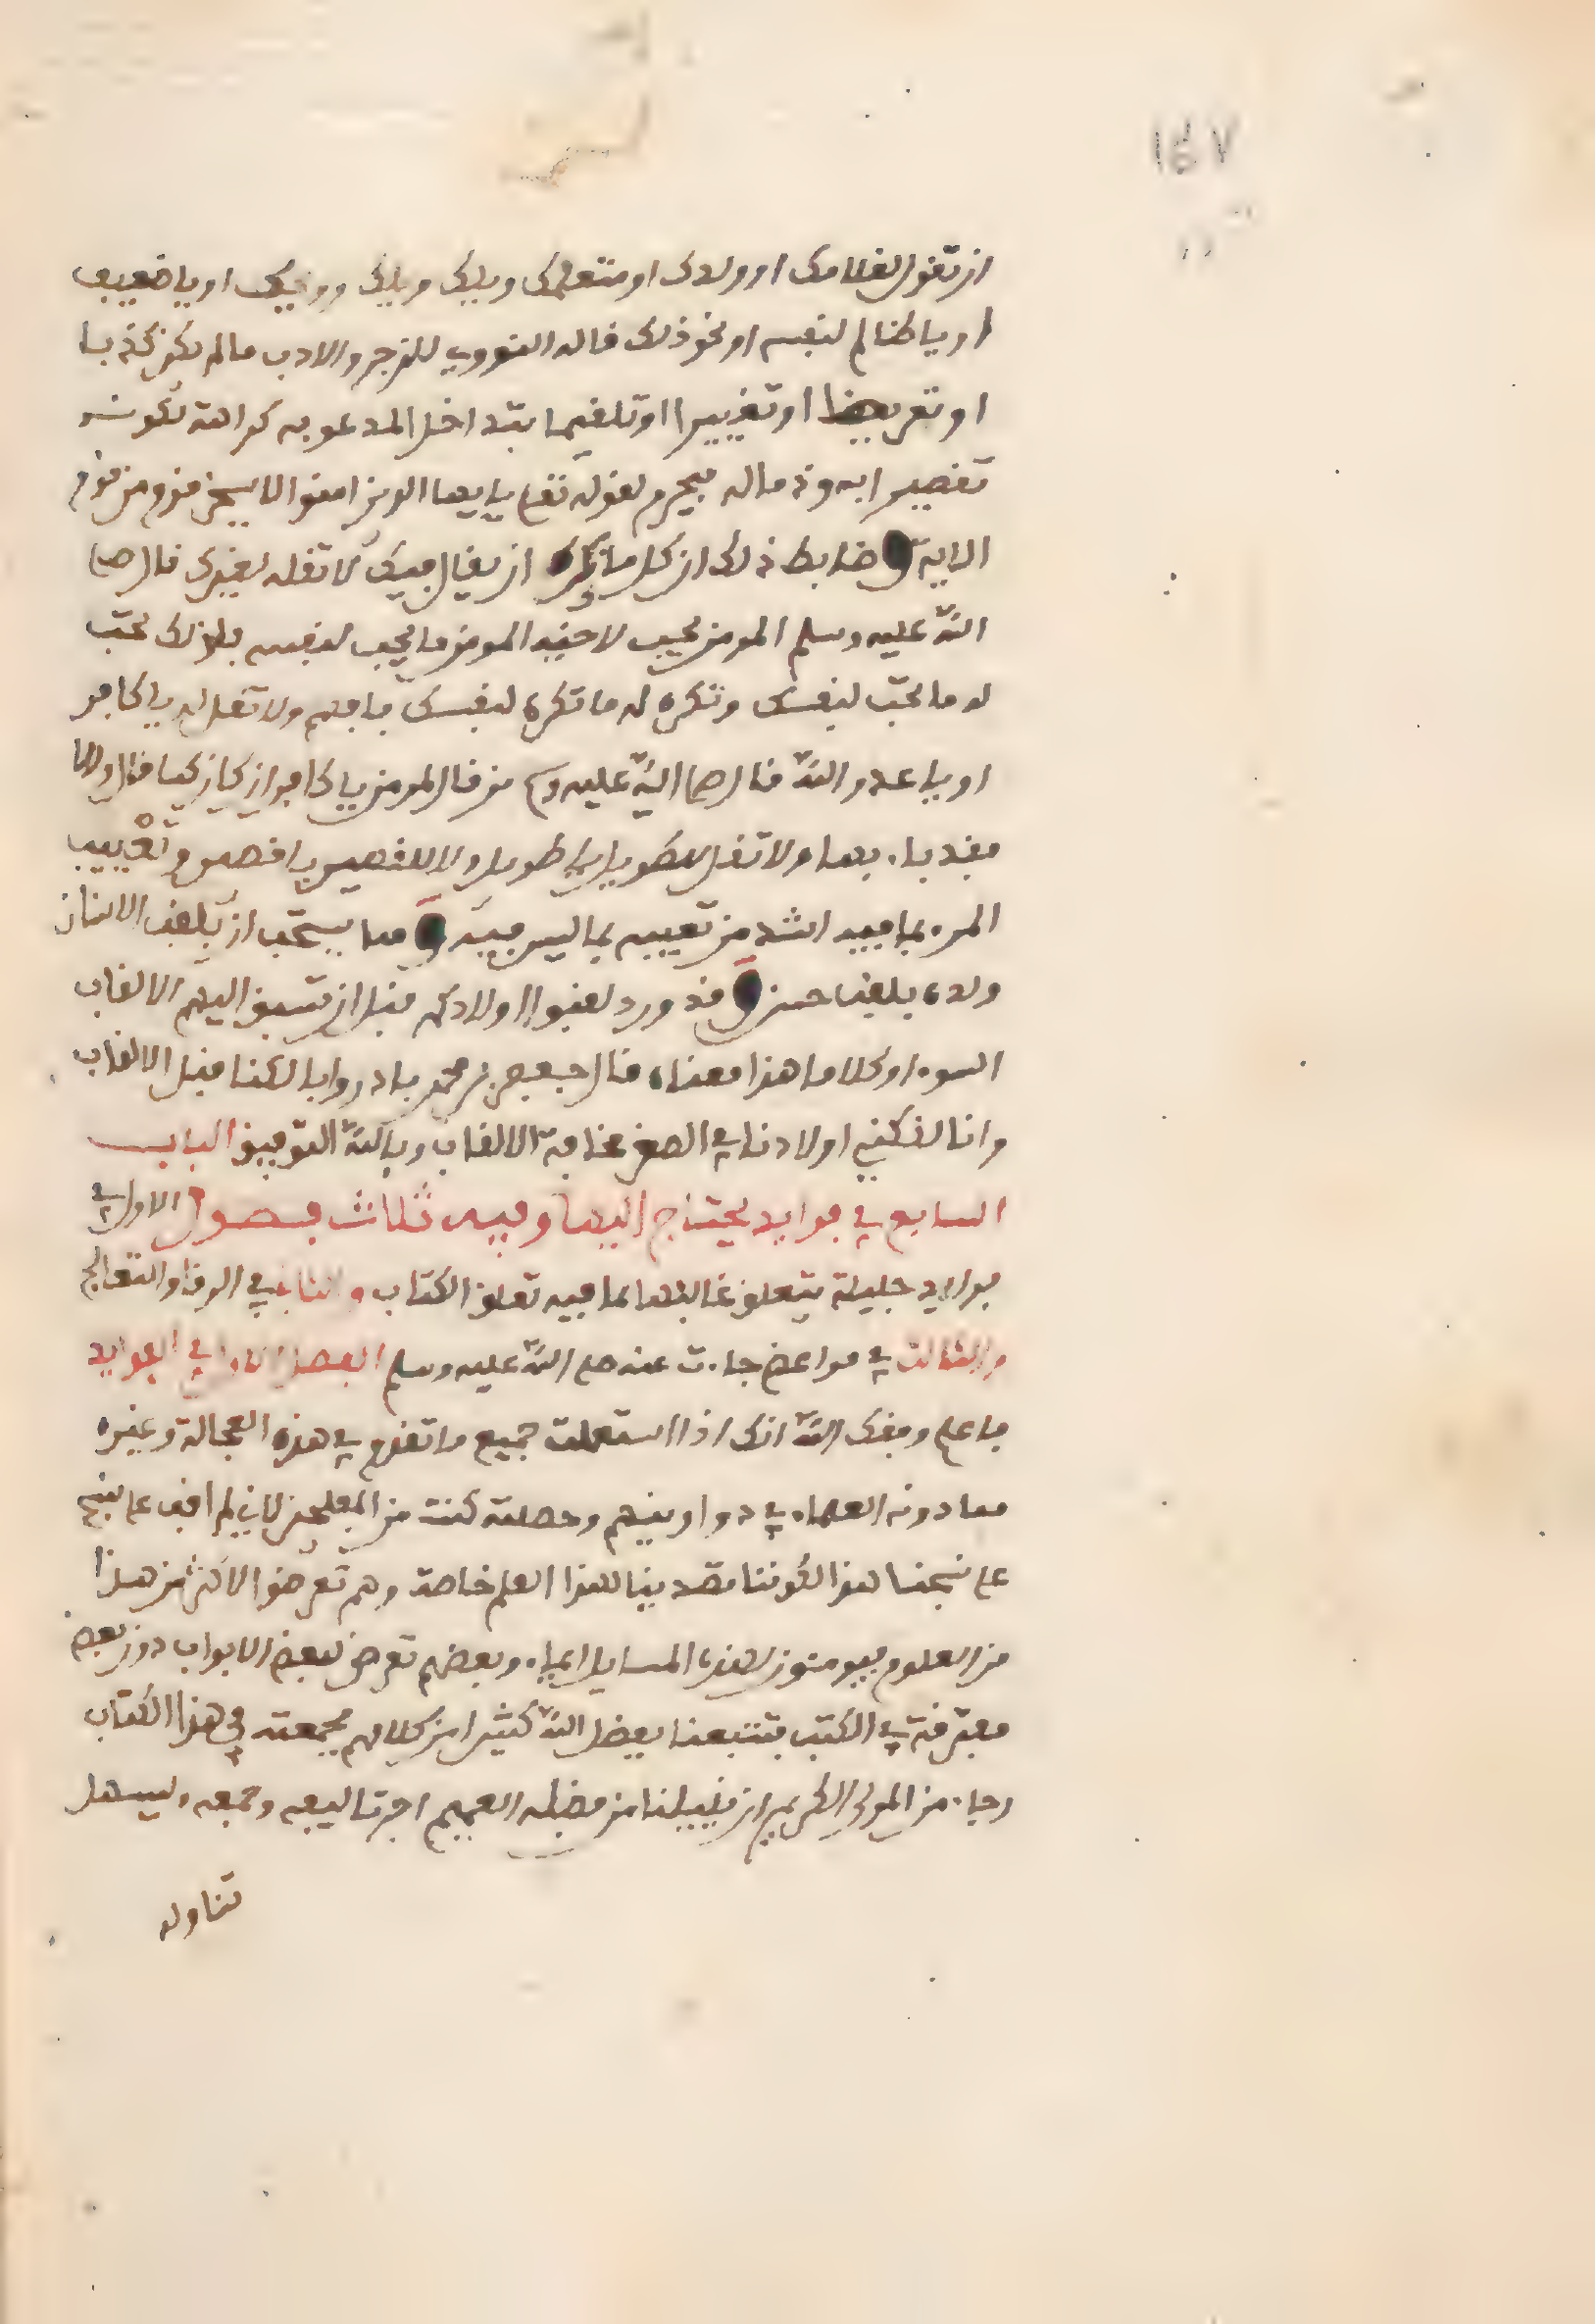 ١٤٧
ان تقول لغلامك او ولدك او متعلمك ويلك ويلك وويحك او يا ضعيف
او يا ظالم لنفسه او نحو ذلك قاله النووي للزجر والادب ما لم يكن كذبا
او تعريضا او تغييرا او تلقيبا بتداخل المدعو به كراهة لكونه
تقصيرا به وذما له فيحرم لقوله تعلى يايها الذين امنوا لا يسخر قوم من قوم
الاية وضابط ذلك ان كل ما تكره ان يقال فيك لا تقله لغيرك قال (ص)
الله عليه وسلم المومن يحب لاخيه المومن ما يحب لنفسه فلذلك تحب
له ما تحب لنفسك وتكره له ما تكره لنفسك فافهم ولا تقل له يا كافر
او يا عدو الله قال صلى الله عليه وسلم من قال لمومن يا كافر ان كان كما قال والا
فقد باء بها ولا تقل للطويل يا طويل ولا للقصير يا قصير وتعييب
المرء بما فيه اشد من تعييبه بما ليس فيه ومما يستحب ان يلقب الانسان
ولده بلقب حسن وقد ورد لقبوا اولادكم قبل ان تسبق اليهم الالقاب
السوء او كلاما هذا معناه قال جعفر بن محمد بادروا بالكنا قبل الالقاب
وانا لنكني اولادنا في الصغر مخافة الالقاب وبالله التوفيق الباب
السابع في فوايد يحتاج اليها وفيه ثلاث فصول الاول في
فوايد جليلة يتعلق غالبها بما فيه تعلق الكتاب والثاني في الرقا والتعالج
والثالث في مواعض جاءت عنه صلى الله عليه وسلم الفصل الاول في الفوايد
فاعلم وفقك الله انك اذا استعملت جميع ما تقدم في هذه العجالة وغيره
مما دونه العلماء في دواوينهم وحصلته كنت من المفلحين لاني لم اقف على
على نهجنا هذا لكوننا تصدينا لهذا العلم خاصة وهم تعرضوا لاكثر من هذا
من العلوم فيومنون لهذه المسايل ايماء وبعضهم تعرض لبعض الابواب دون بعض
مفترقة في الكتب فتتبعنا بفضل الله كثيرا من كلامهم فجمعته في هذا الكتاب
رجاء من المولى الكريم ان ينيلنا من فضله العميم اجر تاليفه وجمعه وليسهل
تناوله